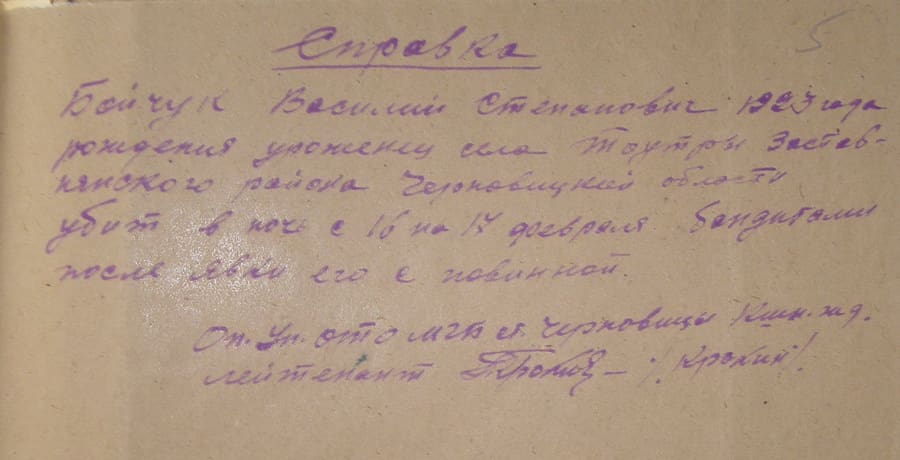 5
Справка
Бойчук Василий Степанович 1923 года
рождения уроженец села Тоутры Застав-
нянского района Черновицкий области
убит в ночь с 16 на 17 февраля бандитами
после явки его с повинной.
Оп. Уп. ОТО МГБ ст. Черновицы Кшн. жд.
лейтенант /